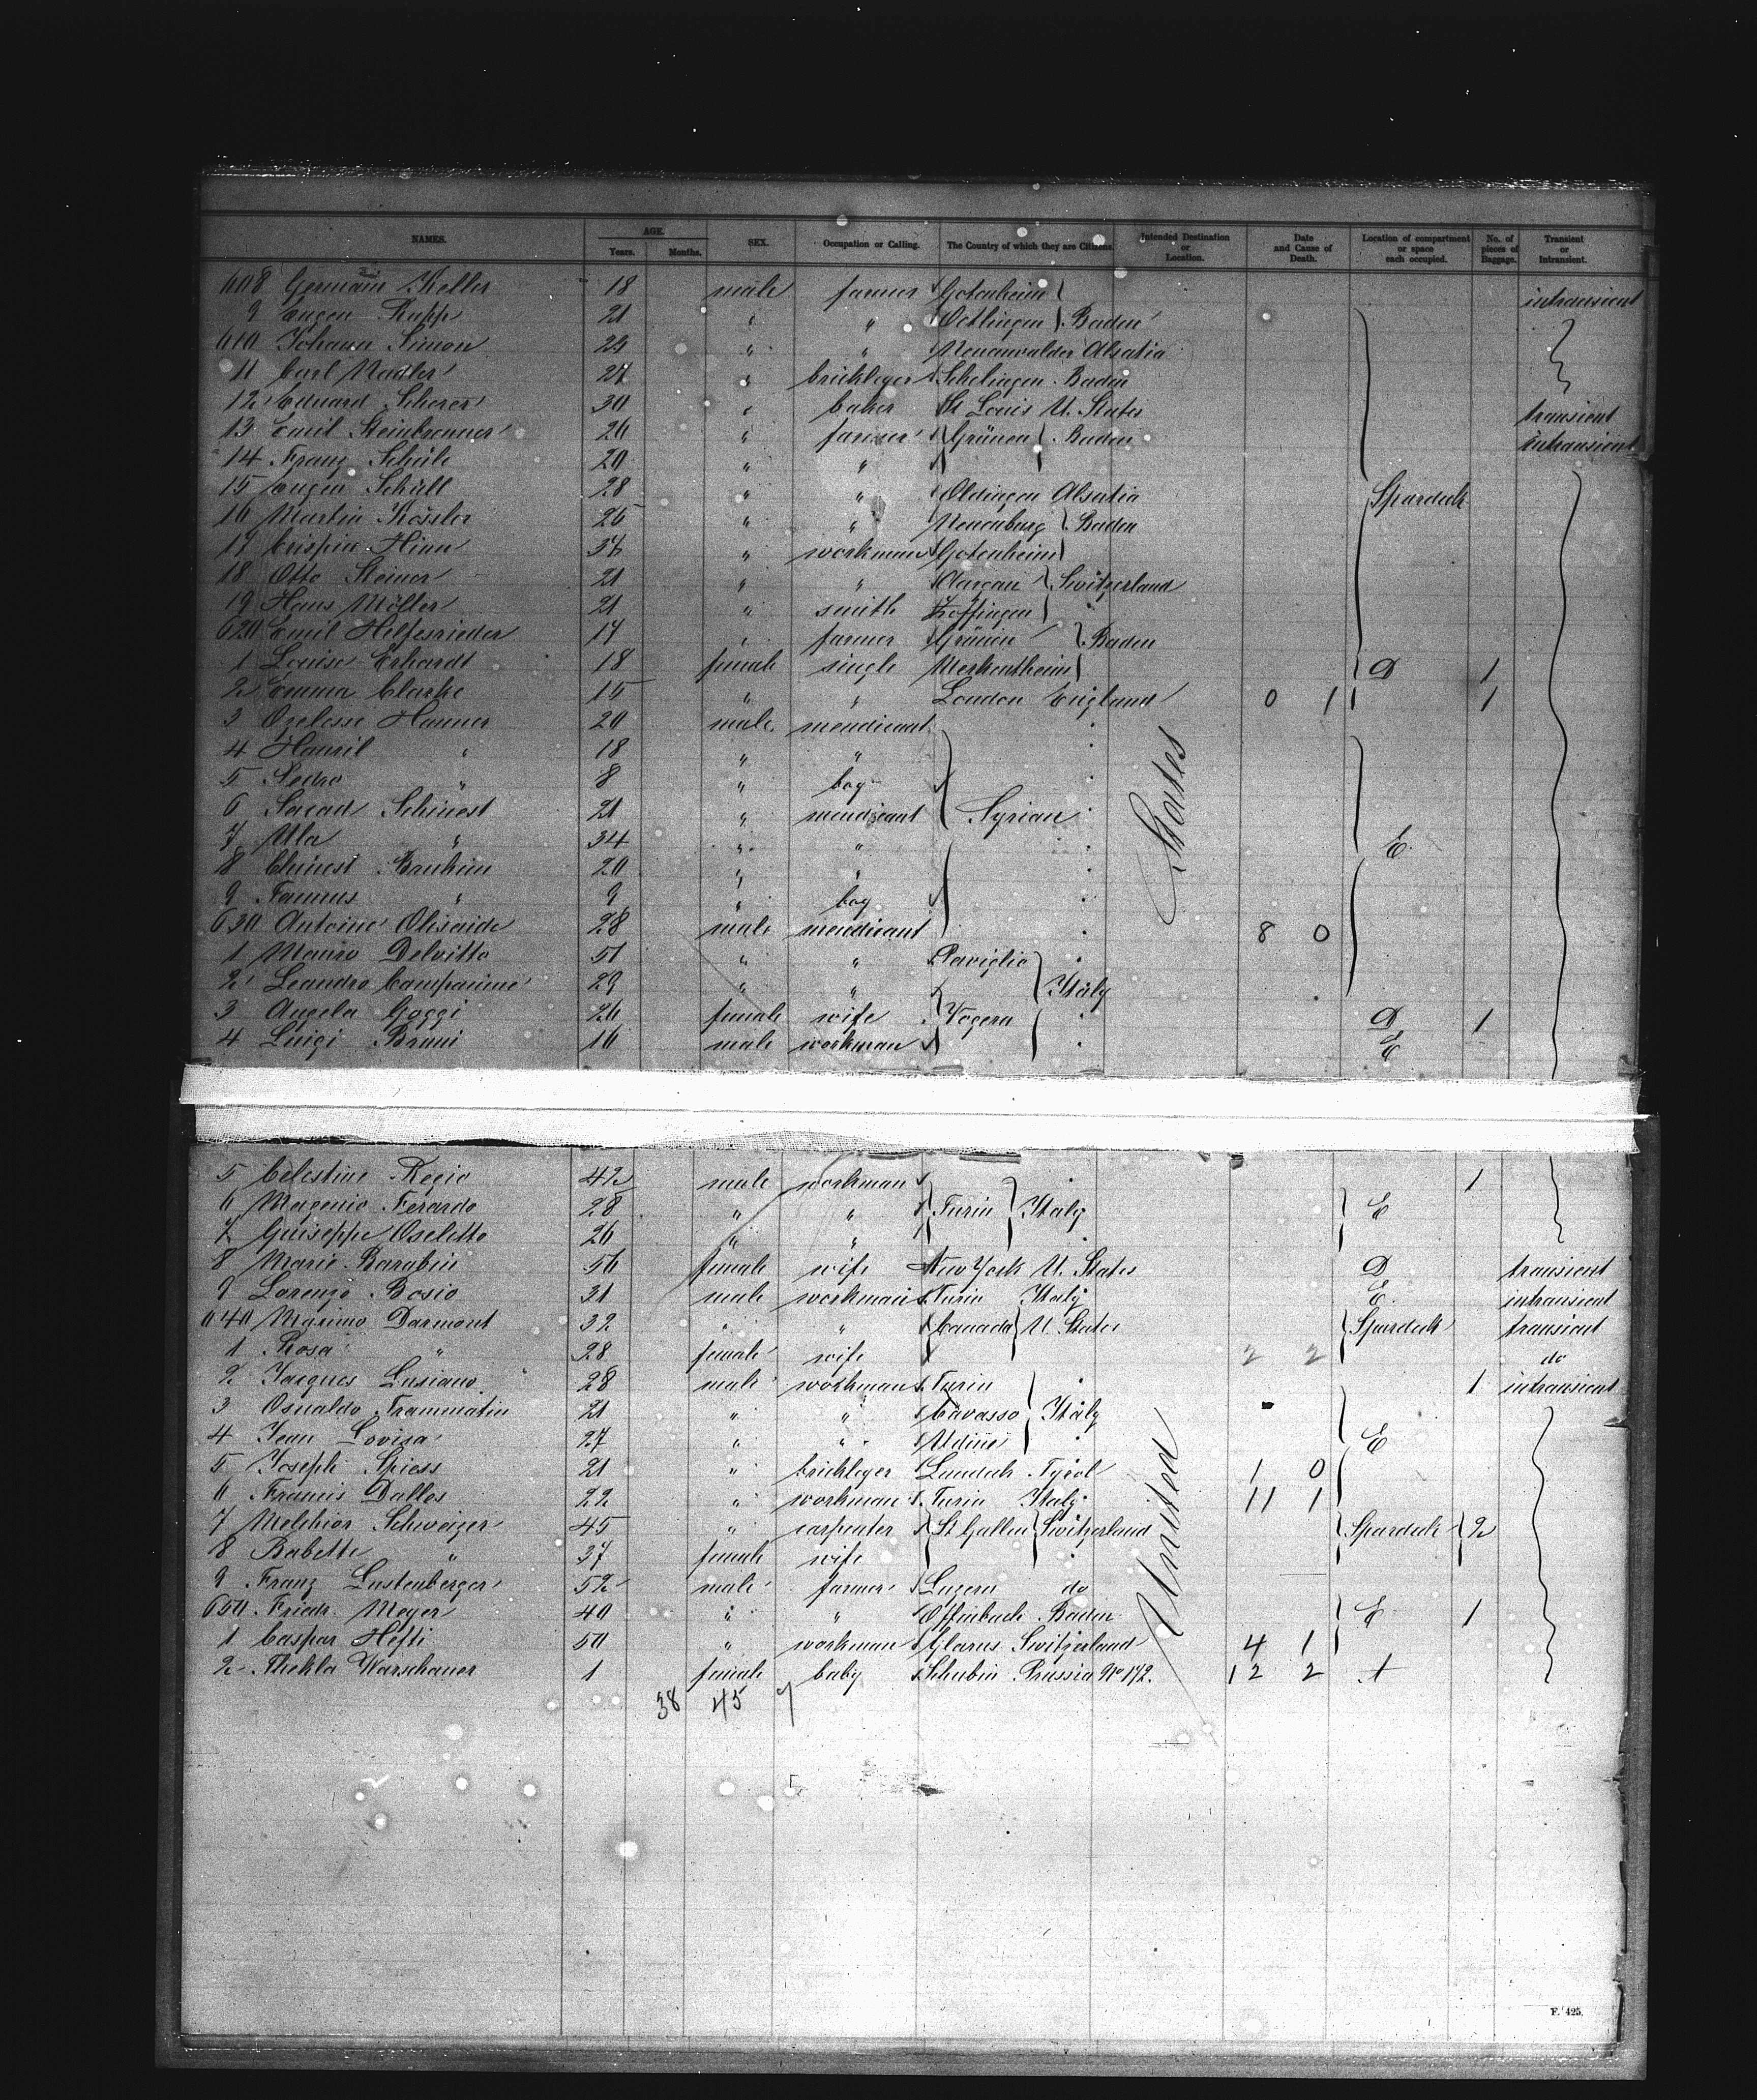 NAMES. AGE. Years. Months. SEX. Occupation or Calling. The Country of which they are Citizens. Intended Destination or Location. Date and Cause of Death. Location of compartment or space each occupied. No. of pieces of Baggage. Transient or Intransient.
608 Germain Keller 18 male farmer Gotenheim intransient
9 Eugen Rupp 21 " " Oetlingen Baden
610 Johann Simon 23 " " Alsatia
11 Carl Nadler 27 " brickleger Schelingen Baden
12 Eduard Scherer 30 " baker St Louis U. States transient
13 Emil Steinbrenner 26 " farmer Grünen Baden intransient
14 Franz Schüle 20 " "
15 Eugen Schüll 28 " " Oldingen Alsatia Spardeck
16 Martin Kössler 25 " " Neuenburg Baden
17 Crispin Hinn 37 " workman Gotenheim
18 Otto Steiner 21 " " Aargau Switzerland
19 Hans Möller 21 " smith Zoffingen
620 Emil Helfesrieder 17 " farmer Grünen Baden
1 Louise Erhardt 18 female single Merkentheim D 1
2 Emma Clarke 15 " " London England 0 1 1
3 Hanner 20 male mendicant
4 Hanril " 18 " "
5 Sedro " 8 " boy
6 Saead Schinest 21 " mendicant Syrian States
7 Ula " 34 " " E.
8 Chinest 20 " "
9 Fannus " 9 " boy
630 Antoine 28 male mendicant 8 0
1 Mauro Delvitto 51 " " Paviglio
2 Leandro 29 " " Italy
3 Angela Goggi 26 female wife Vogera D 1
4 Luigi Bruni 16 male workman E
5 Celestine Regio 42 male workman 1
6 Magenio Ferardo 28 " " Turin Italy E
7 Guiseppe Oseletto 26 " "
8 Marie Barabin 56 female wife New York U. States D transient
9 Lorenzo Bosio 31 male workman Turin Italy E. intransient
640 Marino Darmont 32 " " Canada U. States Spardeck transient
1 Rosa " 28 female wife 2 2 do
2 Jacques Lusiano 28 male workman Turin 1 intransient
3 Osualdo Frammatin 21 " " Cavasso Italy
4 Jean Lovisa 27 " " Udine E
5 Joseph Spiess 21 " brickleger Landeck Tyrol 1 0
6 Francis Dallos 22 " workman Turin Italy United 11 1
7 Melchior Schweizer 45 " carpenter St Gallen Switzerland Spardeck 2
8 Babette " 37 female wife
9 Franz Lustenberger 52 male farmer Luzern do
650 Friedr. Meyer 40 " " Offenbach Baden E 1
1 Caspar Hefti 50 " workman Glarus Switzerland 4 1
2 Thekla Warschauer 1 female baby Schubin Prussia No 172. 12 2 A
38 45 7
F. 425.